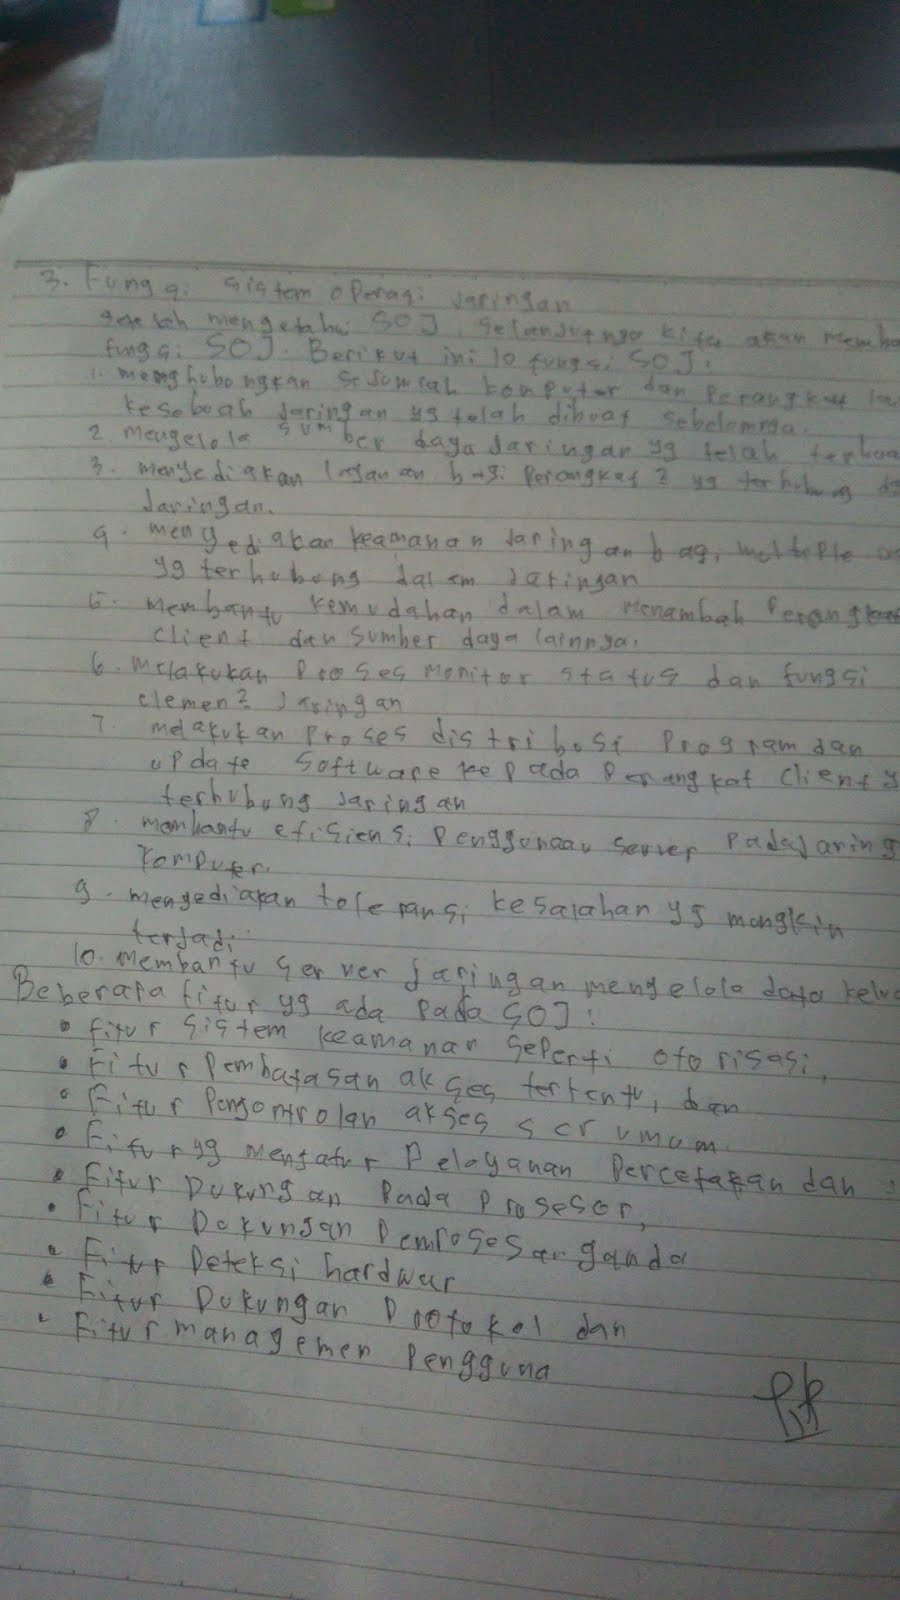 3. Fungsi sistem operasi Jaringan
Setelah mengetahui SOJ, Selanjutnya kita akan memba
fungsi SOJ. Berikut ini 10 fungsi SOJ:
1. menghubungkan sejumlah komputer dan Perangkat la
kesebuah Jaringan yg telah dibuat sebelumnya.
2. Mengelola sumber daya Jaringan yg telah terhu
3. menyediakan layanan bagi Perangkat2 yg terhubung da
Jaringan.
4. menyediakan keamanan Jaringan bagi multiple
yg terhubung dalam Jaringan
5. Membantu kemudahan dalam Menambah Perangkat
Client dan Sumber daya lainnya.
6. Melakukan Proses Monitor status dan fungsi
elemen2 Jaringan
7. melakukan Proses distribusi Program dan
update Software kepada Perangkat Client y
terhubung Jaringan
8. membantu efisiensi Penggunaan server Pada Jaring
Komputer.
9. mengediakan toleransi kesalahan yg mungkin
terjadi
10. Membantu server Jaringan mengelola data kelu
Beberapa fitur yg ada Pada SOJ:
• Fitur sistem keamanan seperti otorisasi,
• Fitur Pembatasan akses tertentu, dan
• Fitur Pengontrolan akses scr umum.
• Fitur yg Mengatur Pelayanan Percetakan dan
• Fitur Dukungan Pada Prosesor,
• Fitur Dukungan Pemrosesan ganda
• Fitur Deteksi hardwar
• Fitur Dukungan Protokol dan
• Fitur managemen Pengguna